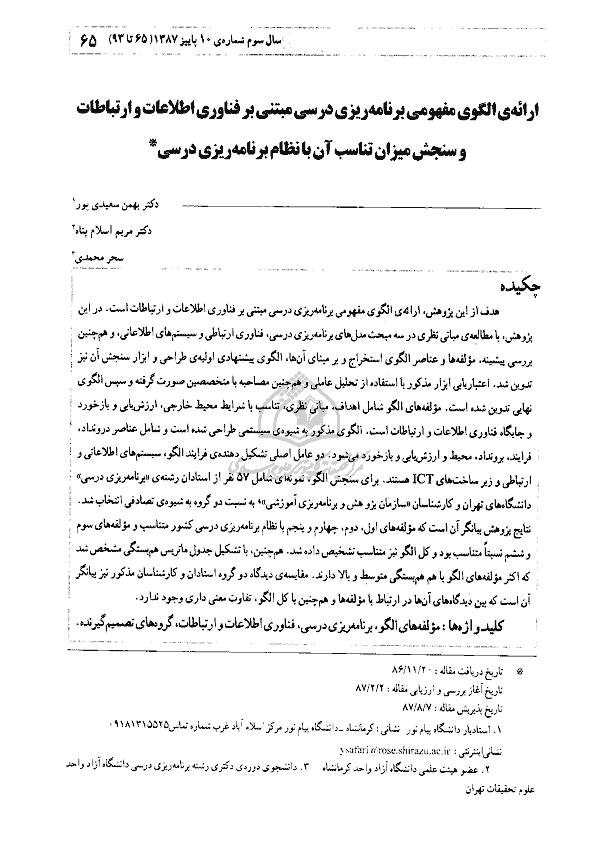 سال سوم شماره‌ی ۱۰ پاییز ۱۳۸۷ (۶۵ تا ۹۳) ۶۵
ارائه‌ی الگوی مفهومی برنامه‌ریزی درسی مبتنی بر فناوری اطلاعات و ارتباطات
و سنجش میزان تناسب آن با نظام برنامه‌ریزی درسی*
دکتر بهمن سعیدی پور۱
دکتر مریم اسلام پناه۲
سحر محمدی۳
چکیده
هدف از این پژوهش، ارائه‌ی الگوی مفهومی برنامه‌ریزی درسی مبتنی بر فناوری اطلاعات و ارتباطات است. در این
پژوهش، با مطالعه‌ی مبانی نظری در سه مبحث مدل‌های برنامه‌ریزی درسی، فناوری ارتباطی و سیستم‌های اطلاعاتی، و هم‌چنین
بررسی پیشینه، مؤلفه‌ها و عناصر الگو استخراج و بر مبنای آن‌ها، الگوی پیشنهادی اولیه‌ی طراحی و ابزار سنجش آن نیز
تدوین شد. اعتباریابی ابزار مذکور با استفاده از تحلیل عاملی و هم‌چنین مصاحبه با متخصصین صورت گرفته و سپس الگوی
نهایی تدوین شده است. مؤلفه‌های الگو شامل اهداف، مبانی نظری، تناسب با شرایط محیط خارجی، ارزش‌یابی و بازخورد
و جایگاه فناوری اطلاعات و ارتباطات است. الگوی مذکور به شیوه‌ی سیستمی طراحی شده است و شامل عناصر درونداد،
فرایند، برونداد، محیط و ارزش‌یابی و بازخورد می‌شود. دو عامل اصلی تشکیل دهنده‌ی فرایند الگو، سیستم‌های اطلاعاتی و
ارتباطی و زیر ساخت‌های ICT هستند. برای سنجش الگو، نمونه‌ای شامل ۵۷ نفر از استادان رشته‌ی «برنامه‌ریزی درسی»
دانشگاه‌های تهران و کارشناسان «سازمان پژوهش و برنامه‌ریزی آموزشی»* به نسبت دو گروه به شیوه‌ی تصادفی انتخاب شد.
نتایج پژوهش بیانگر آن است که مؤلفه‌های اول، دوم، چهارم و پنجم با نظام برنامه‌ریزی درسی کشور متناسب و مؤلفه‌های سوم
و ششم نسبتاً متناسب بود و کل الگو نیز متناسب تشخیص داده شد. هم‌چنین، با تشکیل جدول ماتریس هم‌بستگی مشخص شد
که اکثر مؤلفه‌های الگو با هم هم‌بستگی متوسط و بالا دارند. مقایسه‌ی دیدگاه دو گروه استادان و کارشناسان مذکور نیز بیانگر
آن است که بین دیدگاه‌های آن‌ها در ارتباط با مؤلفه‌ها و هم‌چنین با کل الگو، تفاوت معنی داری وجود ندارد.
کلید واژه‌ها : مؤلفه‌های الگو، برنامه‌ریزی درسی، فناوری اطلاعات و ارتباطات، گروه‌های تصمیم‌گیرنده.
* تاریخ دریافت مقاله : ۸۶/۱۱/۲۰
تاریخ آغاز بررسی و ارزیابی مقاله : ۸۷/۲/۲
تاریخ پذیرش مقاله : ۸۷/۸/۷
۱. استادیار دانشگاه پیام نور نشانی : کرمانشاه ـ دانشگاه پیام نور مرکز اسلام آباد غرب شماره تماس ۰۹۱۸۱۳۱۵۵۲۵
نشانی اینترنتی : ysafari@rose.shirazu.ac.ir
۲. عضو هیئت علمی دانشگاه آزاد واحد کرمانشاه ۳. دانشجوی دوره‌ی دکتری رشته برنامه‌ریزی درسی دانشگاه آزاد واحد
علوم تحقیقات تهران